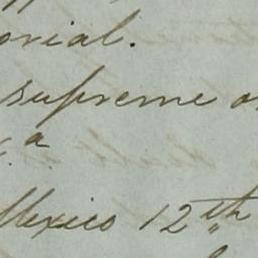 orial.
supreme o
a
Mexico 12th